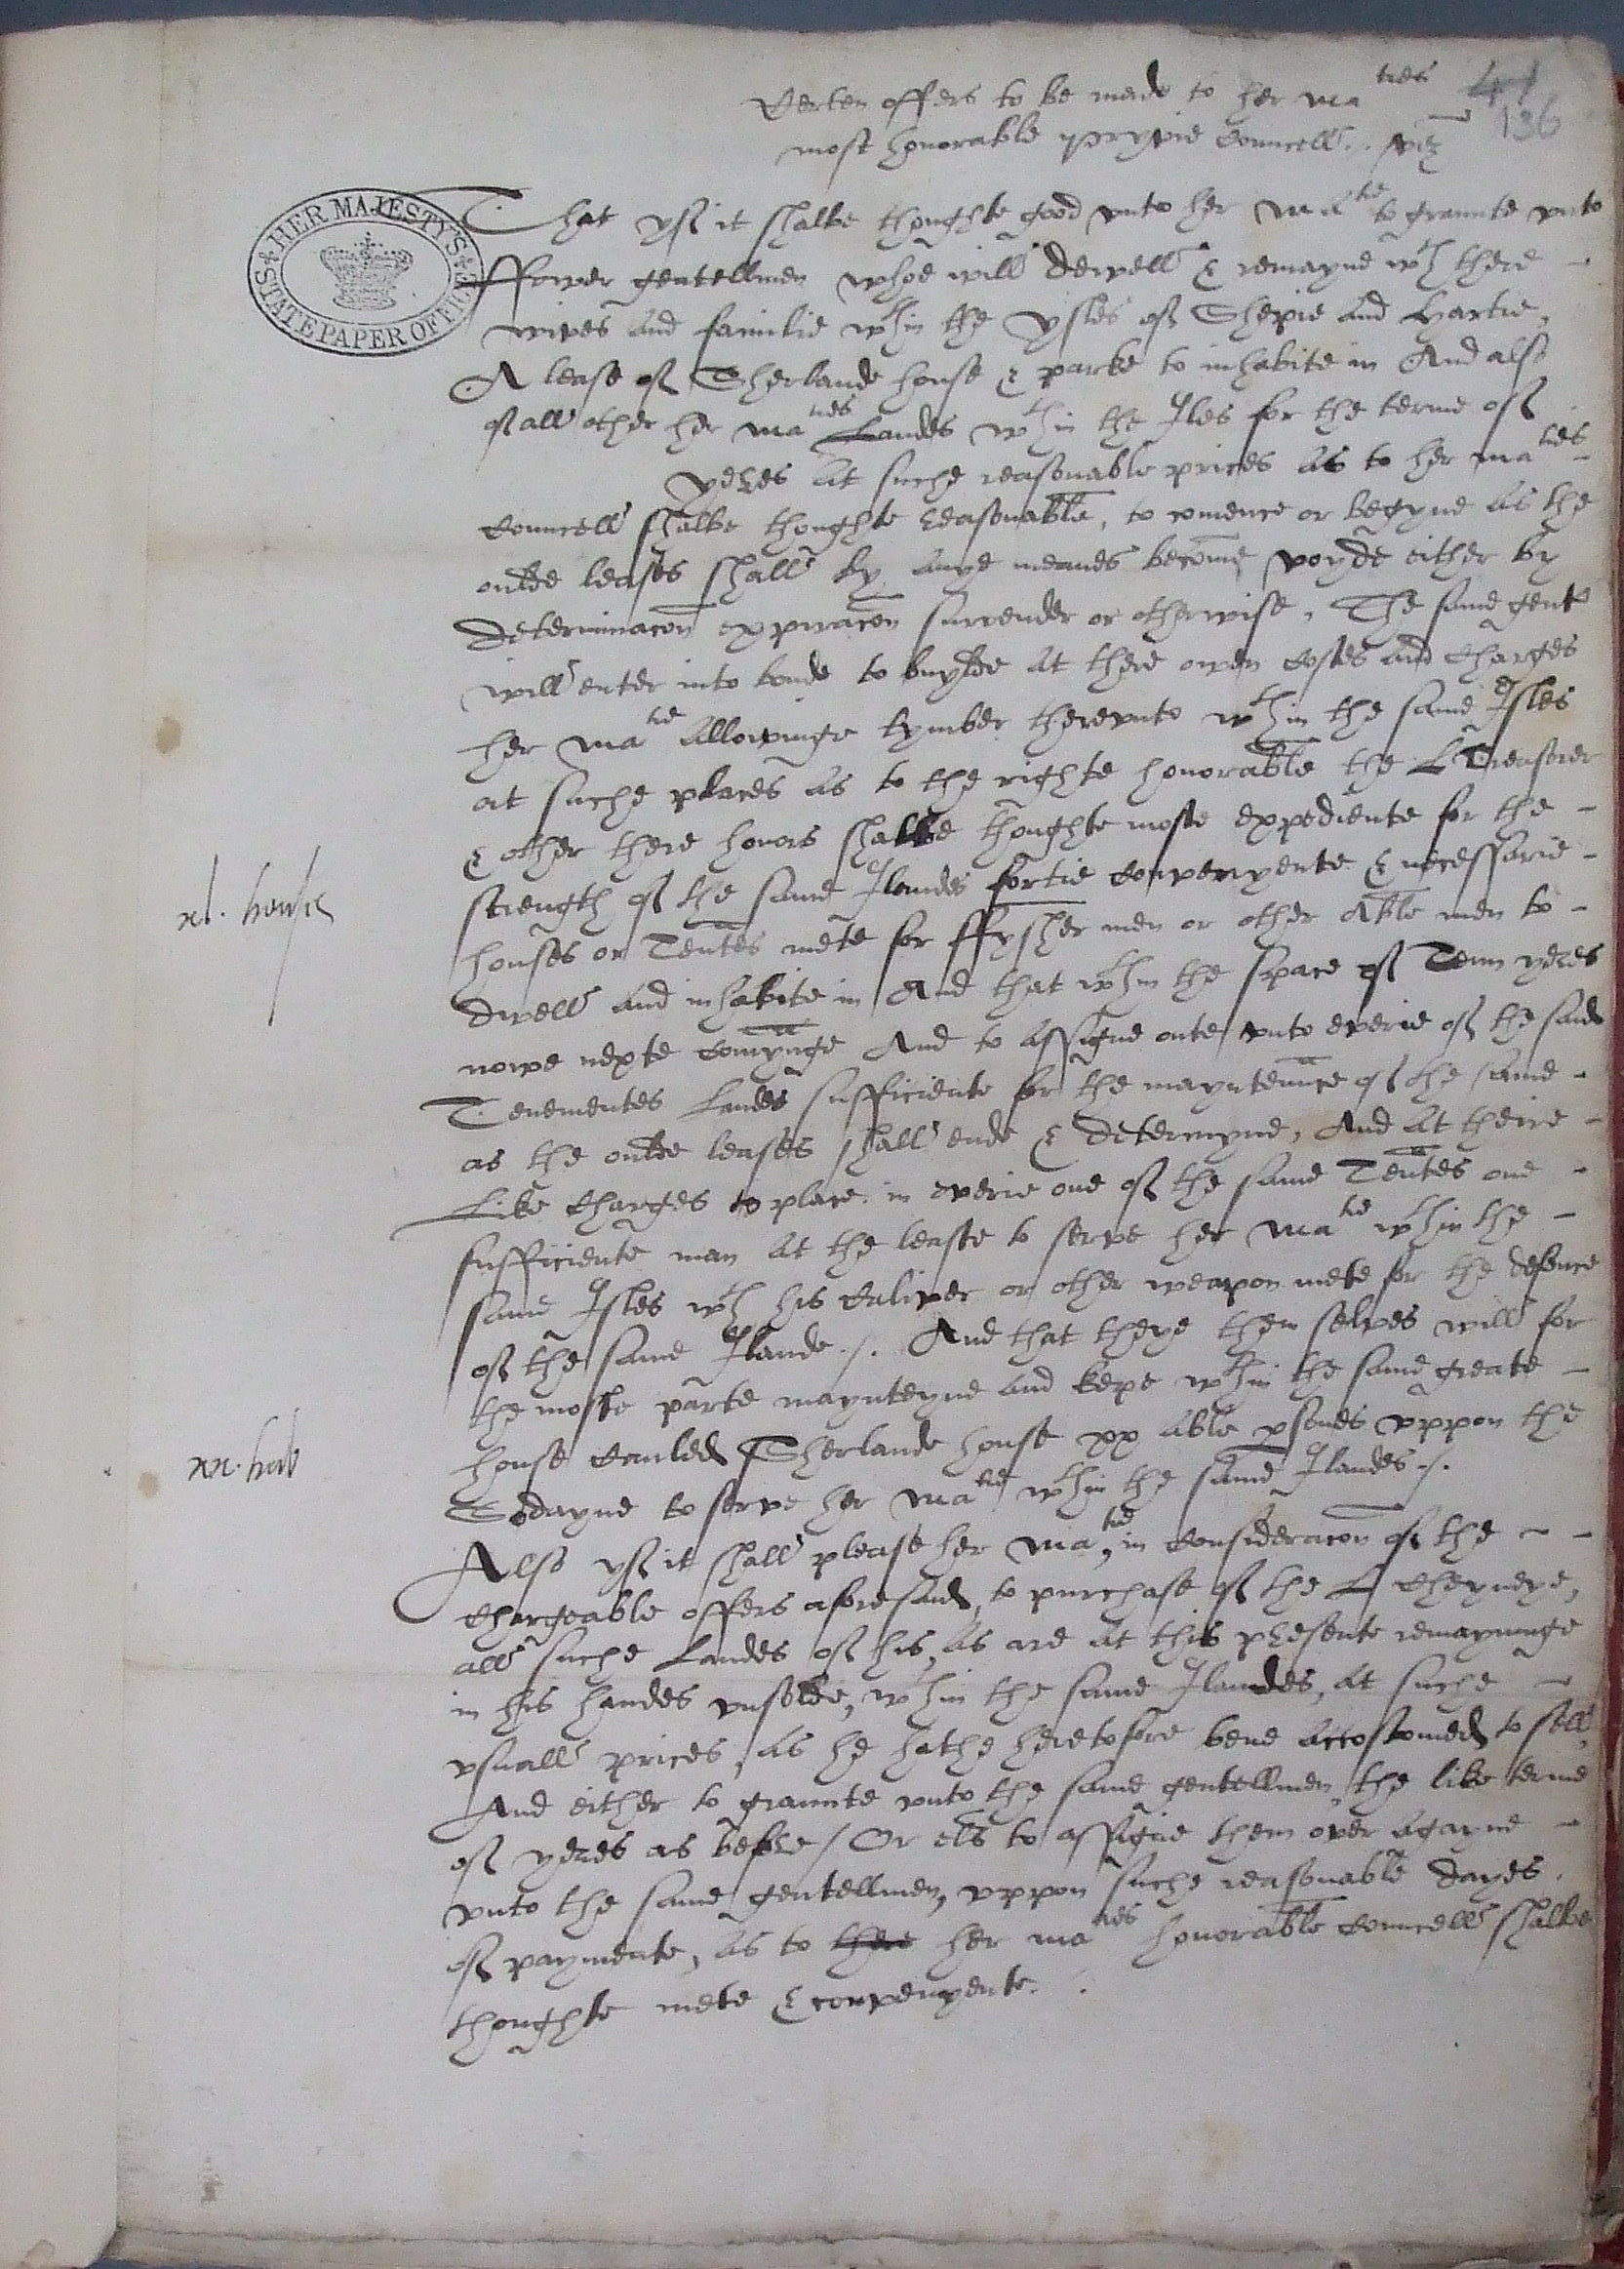 Certen offers to be made to her maties
41
most honorable pryvie Councell . . viz
136
HER MAJESTY'S STATE PAPER OFFICE
That yf it shalbe thoughte good vnto her Matie to graunte vnto
ffower gentellmen whoe will dwell & remayne wth there -
wives and familie wthin the ysles of Shepie and Hartie,
A lease of Sherlande house & parke to inhabite in And also
of all other her maties Landes wthin the Iles for the terme of
yeres at suche reasonable prices as to her maties -
Councell shalbe thoughte reasonable, to comence or begyne as the
oulde leases shall by anye meanes become voyde either by
determinacon expiracon surrender or otherwise, The same gent
will enter into bonde to buylde at there owen Costes and Charges
her matie allowinge tymber therevnto wthin the same Isles
at suche places as to the righte honorable the L Treasorer
& other there honors shalbe thoughte moste expediente for the -
strength of the same Ilandes fortie Convenyente & necessarie -
xl. howses
houses or Tentes mete for ffysher men or other able men to -
dwell and inhabite in And that wthin the space of Tenn yeres
nowe nexte Comynge And to assigne oute vnto everie of the said
Tenementes Landes sufficiente for the mayntennce of the same -
as the oulde leases shall ende & determyne, And at theire -
Like Charges to place in everie one of the same Tentes one -
sufficiente man at the leaste to serve her matie wthin the -
same Isles wth his Caliver or other weapon mete for the defence
of the same Ilande ./. And that theye them selves will for
the moste parte maynteyne and kepe wthin the same greate -
house Cauled Sherlande house xx able psones vppon the
xx. hab
Sodayne to serve her matie wthin the same Ilandes ./.
Also yf it shall please her matie, in Consideracon of the - -
Chargeable offers aforesaid, to purchase of the L Cheyneye,
all suche Landes of his, as are at this presente remayninge
in his handes vnsolde, wthin the same Ilandes, at suche -
vsuall prices, as he hathe heretofore bene accostomed to sell,
And either to graunte vnto the same gentellmen, the like terme
of yeres as before / Or els to assigne them over agayne -
vnto the same gentellmen, vppon suche reasonable dayes .
of paymente, as to there her maties honorable Councell shalbe
thoughte mete & convenyente . .